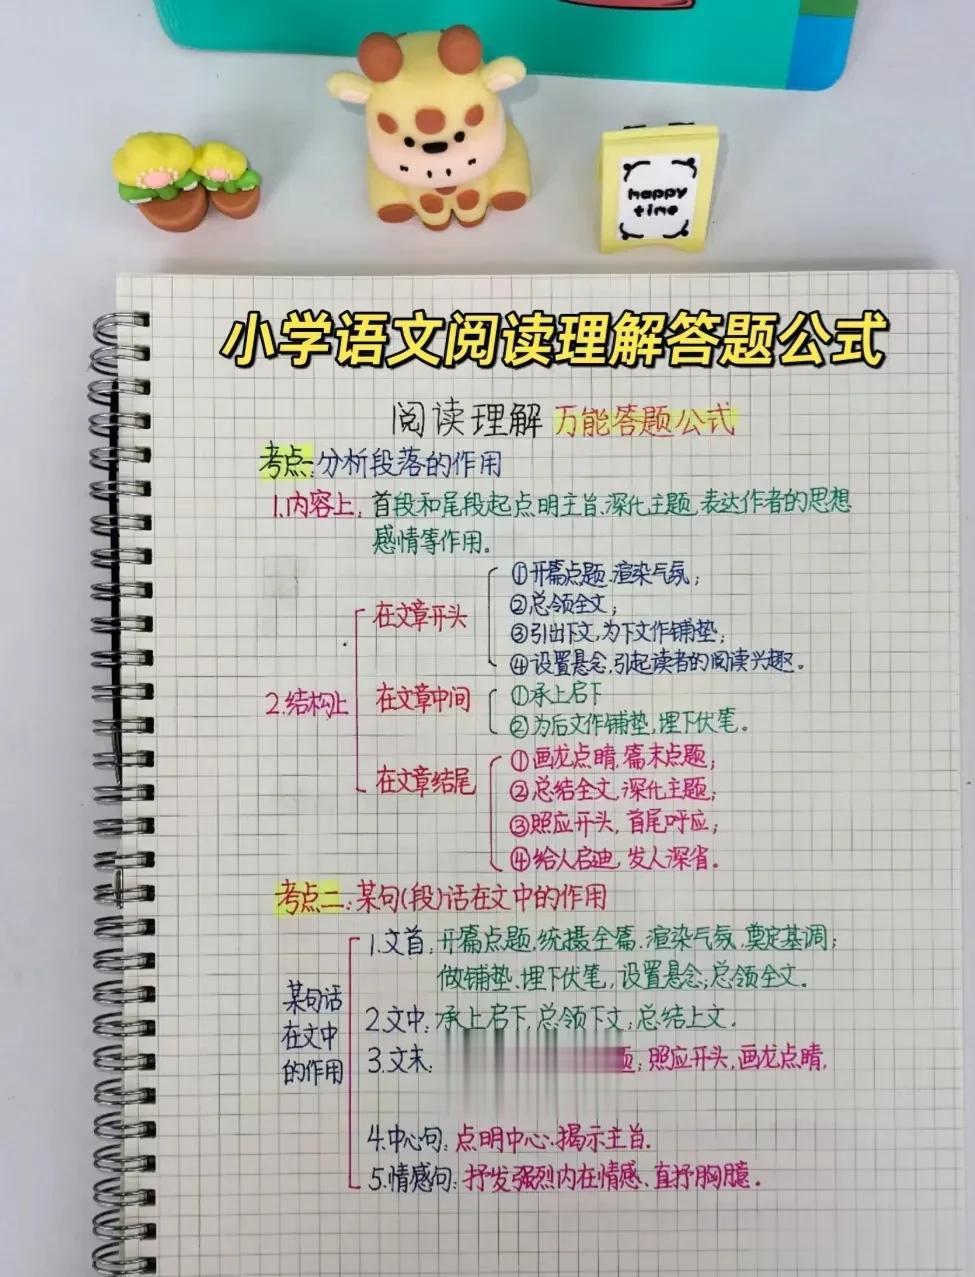 happy
time
小学语文阅读理解答题公式
阅读理解 万能答题公式
考点一:分析段落的作用
1.内容上: 首段和尾段起点明主旨、深化主题、表达作者的思想
感情等作用。
2.结构上
在文章开头
①开篇点题、渲染气氛;
②总领全文;
③引出下文,为下文作铺垫;
④设置悬念,引起读者的阅读兴趣。
在文章中间
①承上启下
②为后文作铺垫,埋下伏笔。
在文章结尾
①画龙点睛,篇末点题;
②总结全文,深化主题;
③照应开头,首尾呼应;
④给人启迪,发人深省。
考点二:某句(段)话在文中的作用
某句话
在文中
的作用
1.文首:开篇点题,统摄全篇.渲染气氛,奠定基调;
做铺垫、埋下伏笔,设置悬念;总领全文.
2.文中:承上启下,总领下文;总结上文.
3.文末: 题;照应开头,画龙点睛,
4.中心句:点明中心、揭示主旨.
5.情感句:抒发强烈内在情感、直抒胸臆.